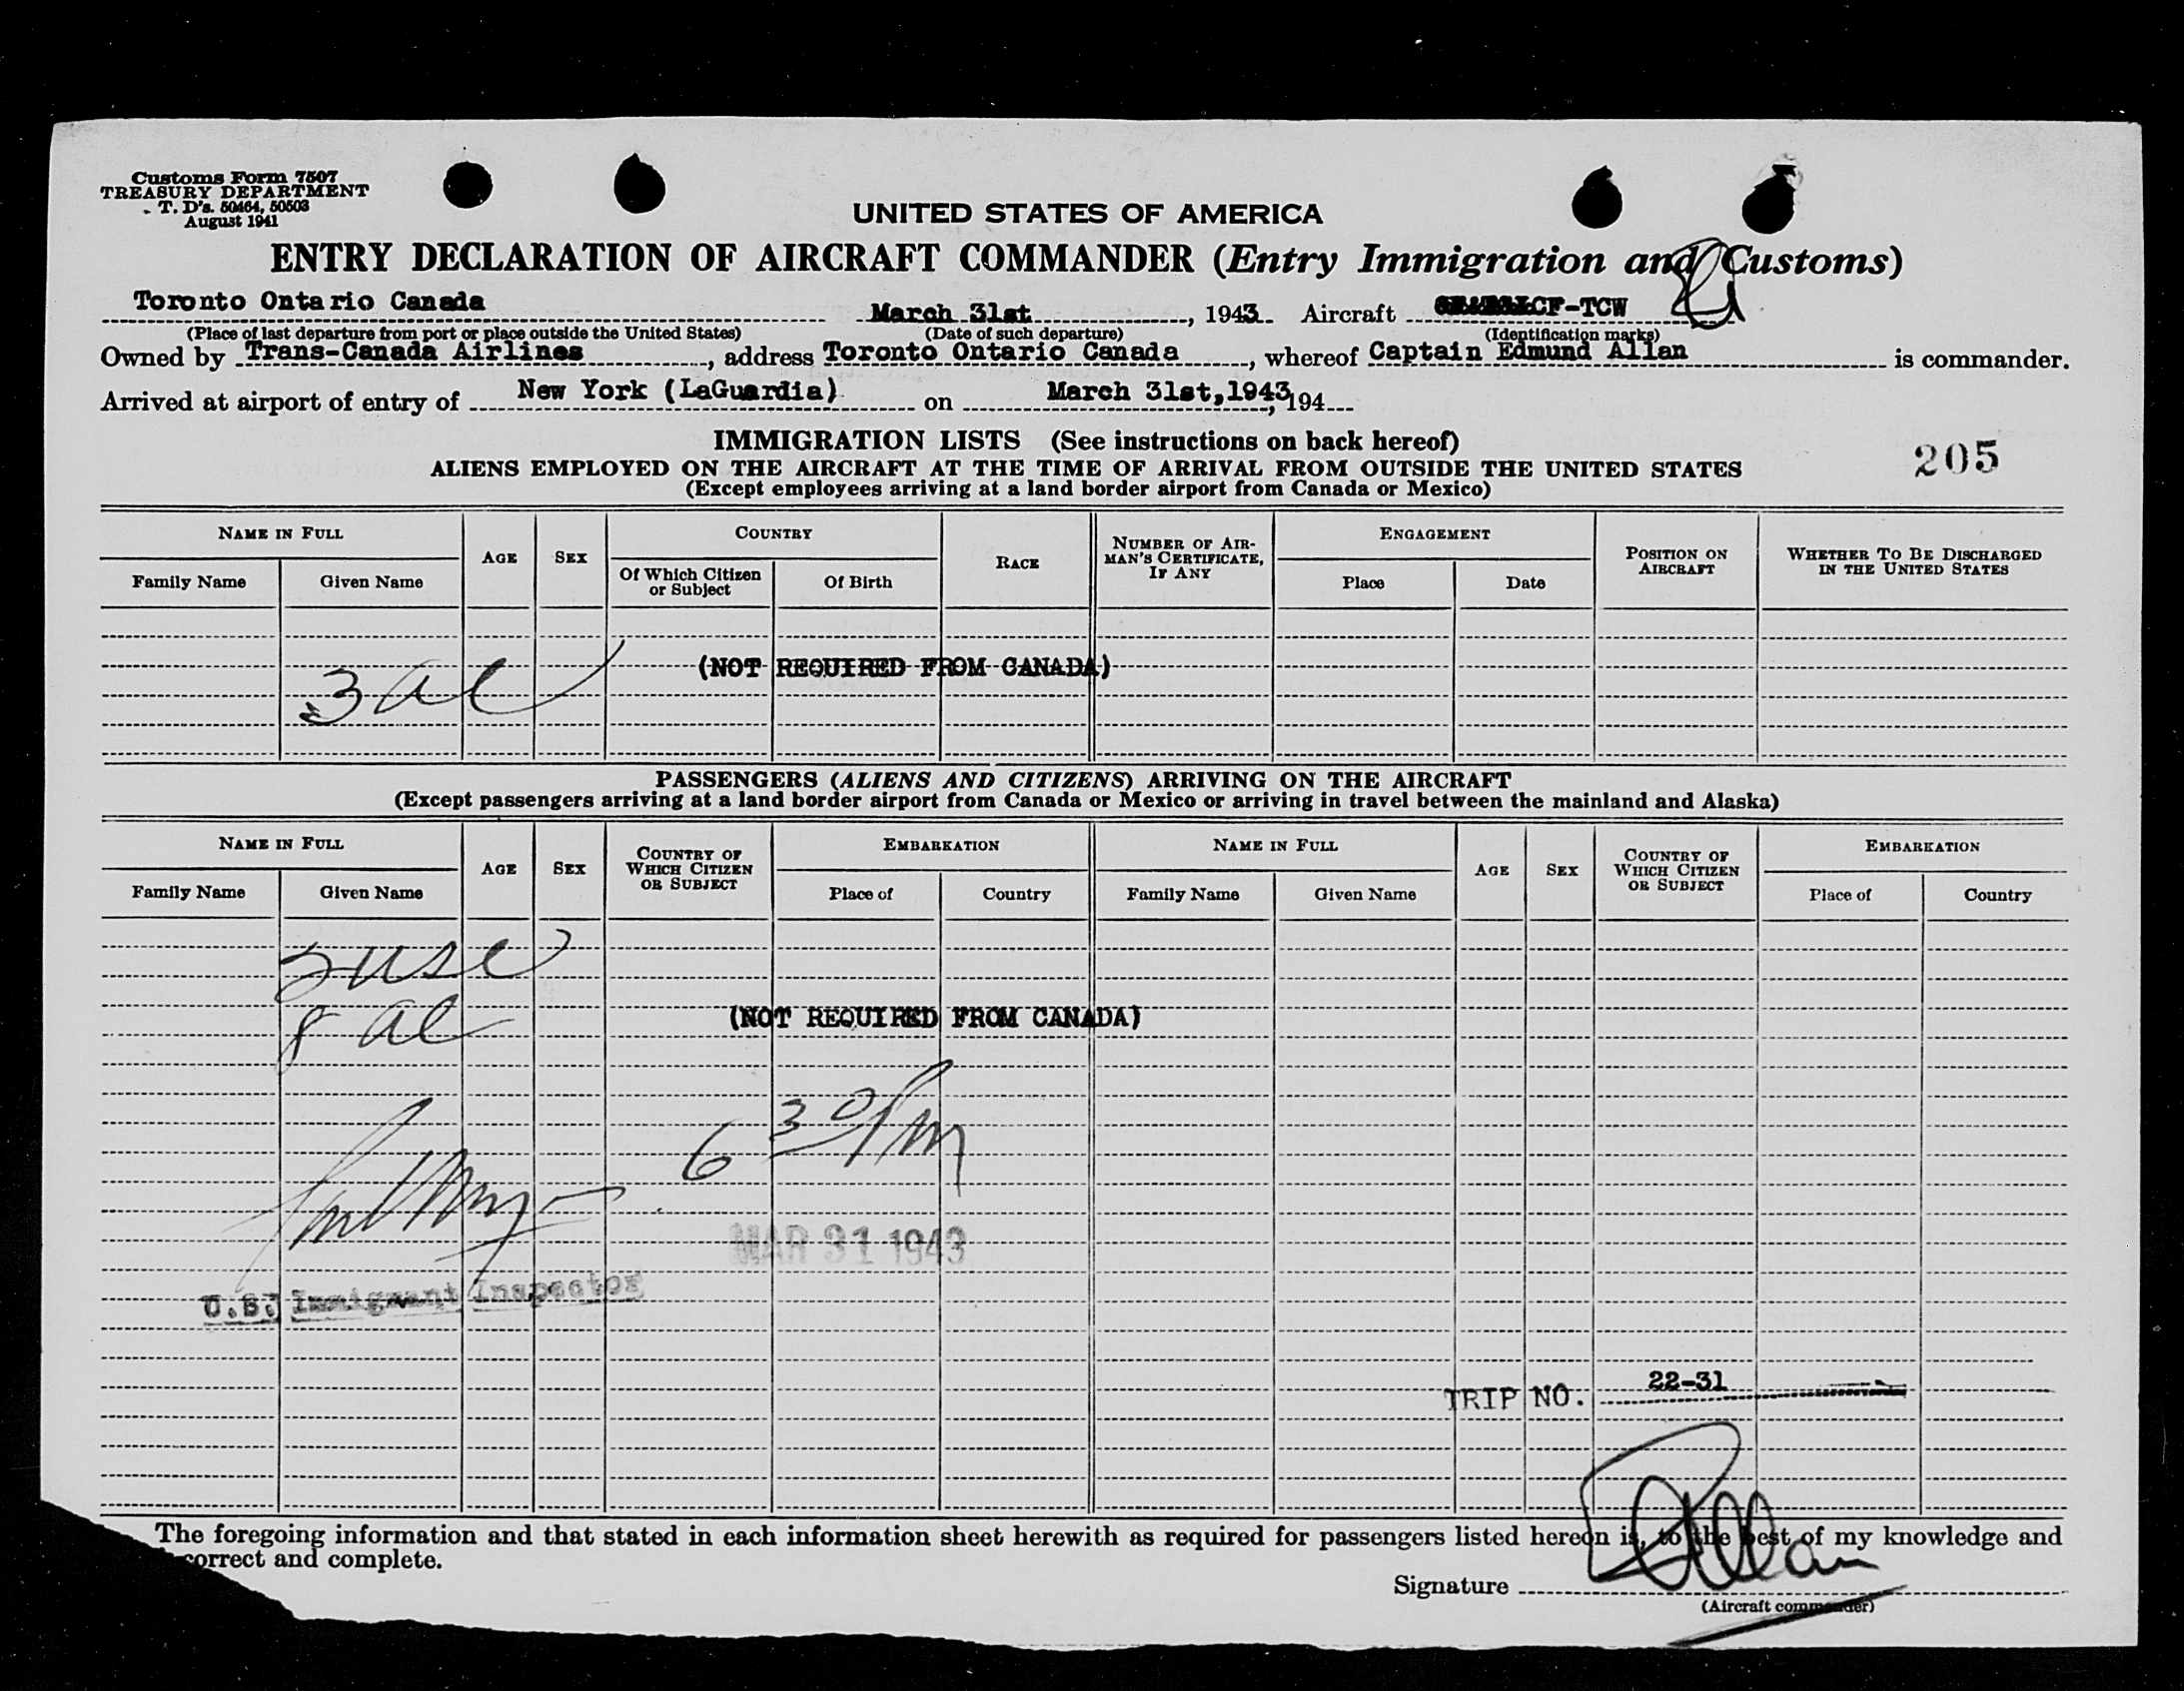 Customs Form 7507
TREASURY DEPARTMENT
T. D's. 50464, 50503
August 1941
UNITED STATES OF AMERICA
ENTRY DECLARATION OF AIRCRAFT COMMANDER (Entry Immigration and Customs)
Toronto Ontario Canada March 31st, 1943 Aircraft CF-TCW
(Place of last departure from port or place outside the United States) (Date of such departure) (Identification marks)
Owned by Trans-Canada Airlines, address Toronto Ontario Canada, whereof Captain Edmund Allan is commander.
Arrived at airport of entry of New York (LaGuardia) on March 31st, 1943, 194
IMMIGRATION LISTS (See instructions on back hereof)
205
ALIENS EMPLOYED ON THE AIRCRAFT AT THE TIME OF ARRIVAL FROM OUTSIDE THE UNITED STATES
(Except employees arriving at a land border airport from Canada or Mexico)
NAME IN FULL AGE SEX COUNTRY RACE NUMBER OF AIRMAN'S CERTIFICATE, IF ANY ENGAGEMENT POSITION ON AIRCRAFT WHETHER TO BE DISCHARGED IN THE UNITED STATES
Family Name Given Name Of Which Citizen or Subject Of Birth Place Date
(NOT REQUIRED FROM CANADA)
3 al
PASSENGERS (ALIENS AND CITIZENS) ARRIVING ON THE AIRCRAFT
(Except passengers arriving at a land border airport from Canada or Mexico or arriving in travel between the mainland and Alaska)
NAME IN FULL AGE SEX COUNTRY OF WHICH CITIZEN OR SUBJECT EMBARKATION NAME IN FULL AGE SEX COUNTRY OF WHICH CITIZEN OR SUBJECT EMBARKATION
Family Name Given Name Place of Country Family Name Given Name Place of Country
usc
8 al
(NOT REQUIRED FROM CANADA)
6 30 Pm
MAR 31 1943
U.S. Immigrant Inspector
TRIP NO. 22-31
The foregoing information and that stated in each information sheet herewith as required for passengers listed hereon is, to the best of my knowledge and
correct and complete.
Signature Allan
(Aircraft commander)